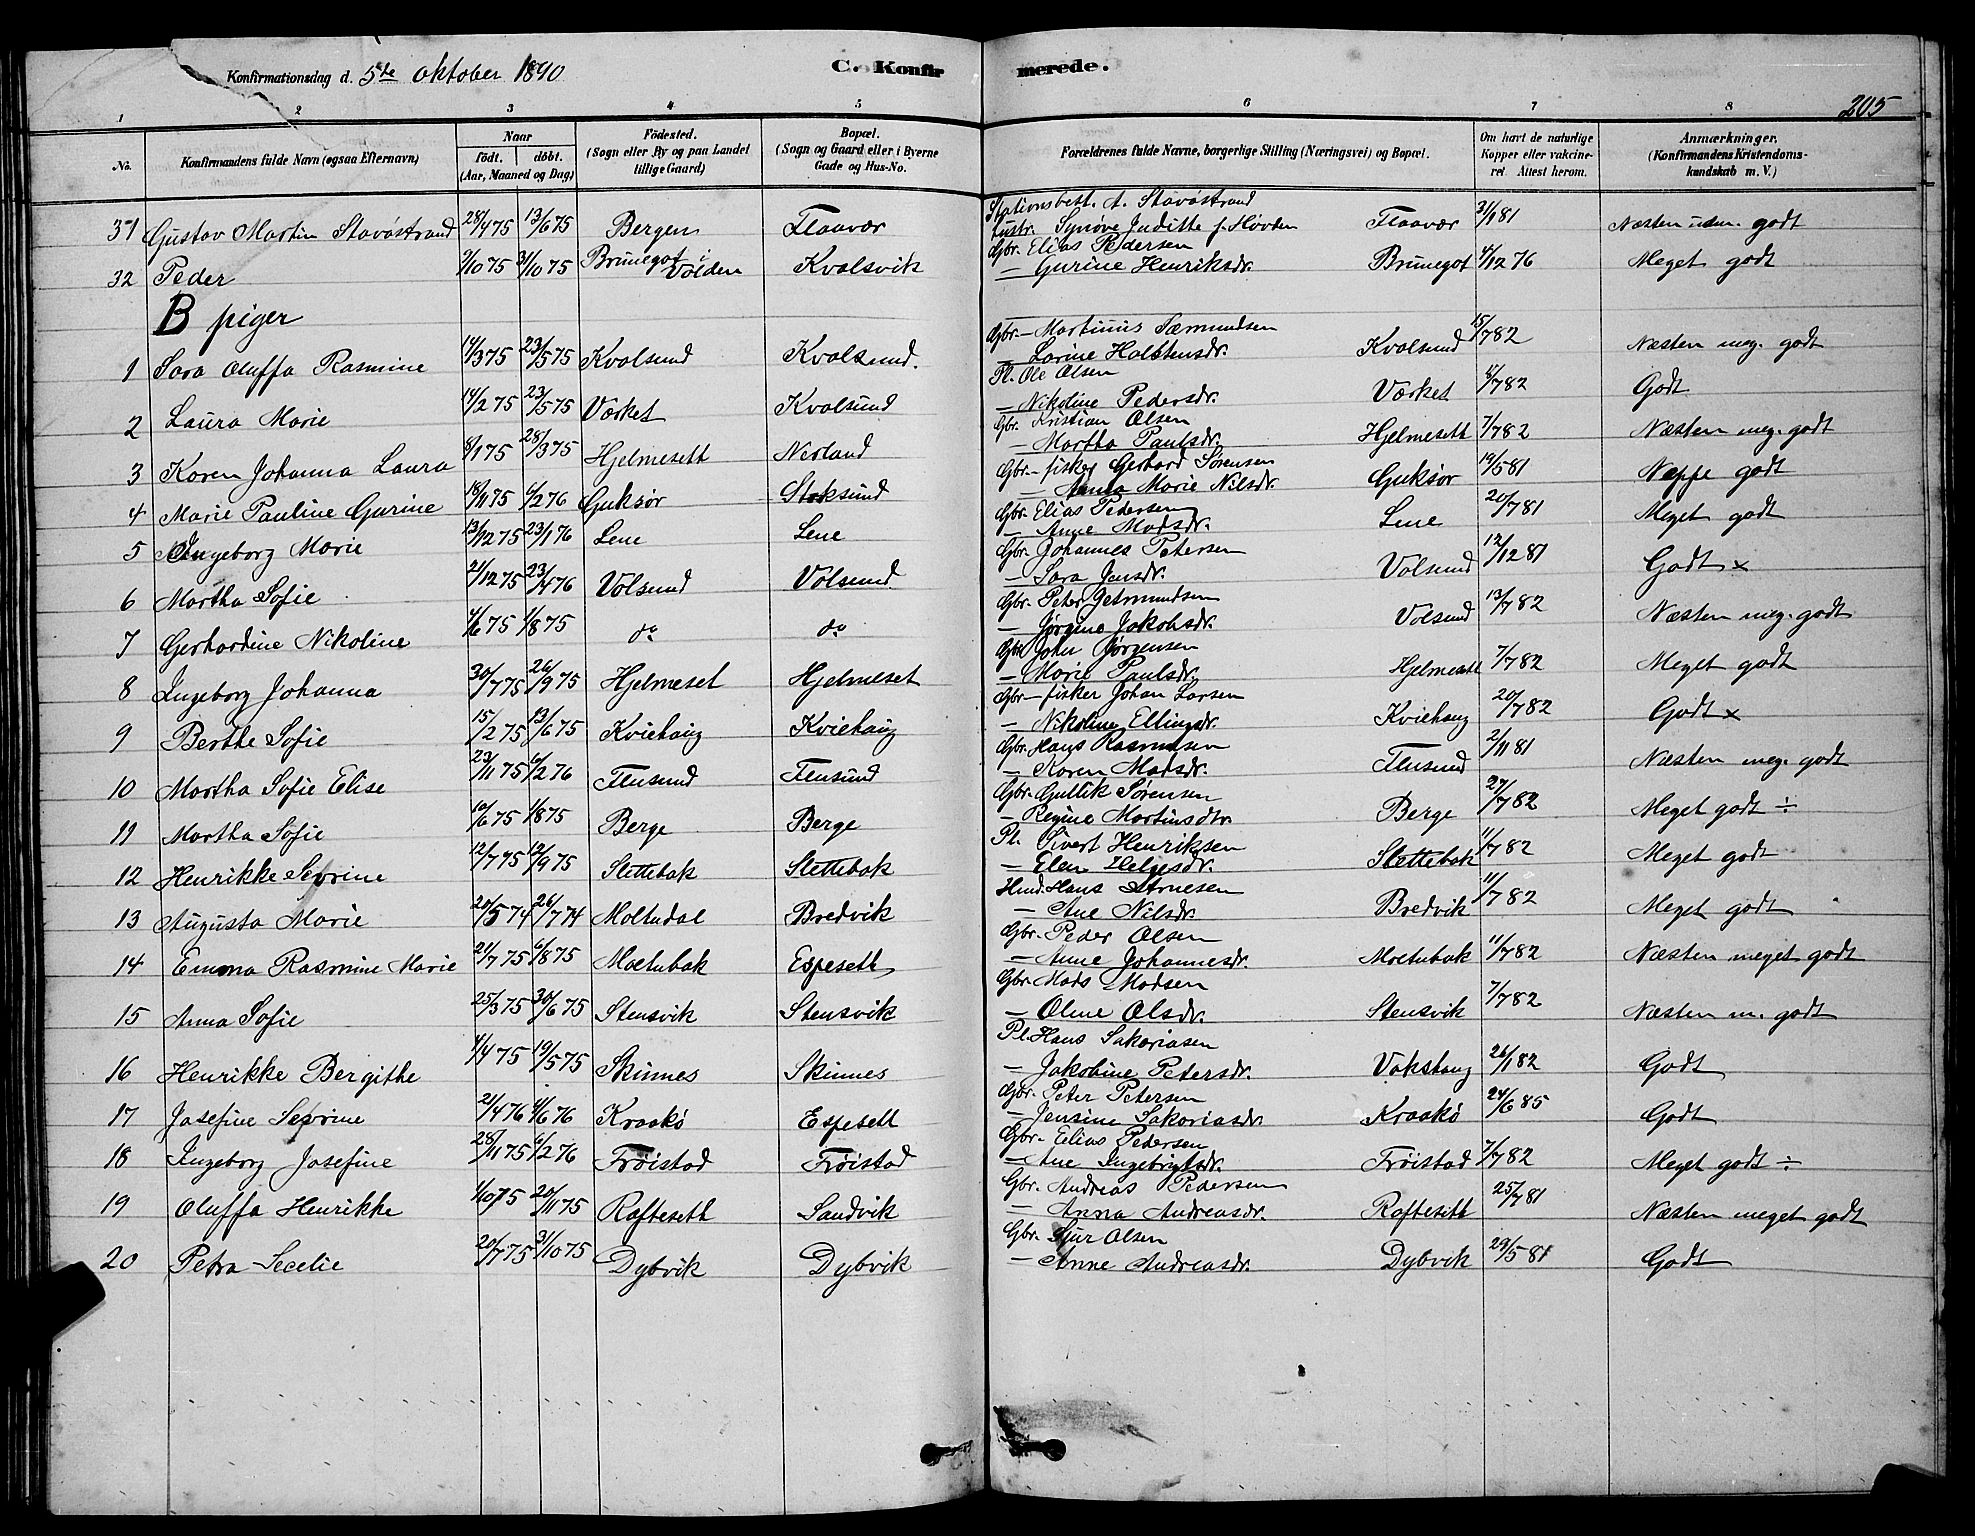 Konfirmationsdag d. 5te oktober 1890 C. Konfirmerede. 205
1 2 3 4 5 6 7 8
No. Konfirmandens fulde Navn (ogsaa Efternavn) Naar födt. döbt. (Aar, Maaned og Dag) Födested. (Sogn eller By og paa Landet tillige Gaard) Bopæl. (Sogn og Gaard eller i Byerne Gade og Hus-No.) Forældrenes fulde Navne, borgerlige Stilling (Næringsvei) og Bopæl. Om havt de naturlige Kopper eller vakcineret. Attest herom. Anmærkninger. (Konfirmandens Kristendomskundskab m. V.)
Stationsbest. A. Stavøstrand
31 Gustav Martin Stavøstrand 28/4 75 13/6 75 Bergen Flaavær Hustr. Synøve Juditte f. Hovden Flaavær 31/1 81 Næsten uden. godt
Gbr. Elias Pedersen
32 Peder 9/10 75 31/10 75 Brunegot i Volden Kvalsvik — Gurine Henriksdr. Brunegot 4/12 76 Meget godt
B piger
Gbr. — Martinus Sæmundsen
1 Sara Oluffa Rasmine 14/3 75 23/5 75 Kvalsund Kvalsund. — Larine Halstensdr. Kvalsund 15/7 82 Næsten meg. godt
Pl. Ole Olsen
2 Laura Marie 14/2 75 23/5 75 Værket Kvalsund — Nikoline Pedersdr. Værket 8/7 82 Godt
Gbr. Kristian Olsen
3 Karen Johanna Laura 8/1 75 28/3 75 Hjelmesett Nerland — Martha Paulsdr. Hjelmesett 7/7 82 Næsten meg. godt
Gbr. — fisker Gerhard Sørensen
4 Marie Pauline Gurine 18/11 75 6/2 76 Guksør Stoksund — Anna Marie Nilsdr. Guksør 19/5 81 Neppe godt
Gbr. Elias Pedersen
5 Ingeborg Marie 13/12 75 23/1 76 Lene Lene — Anne Madsdr. Lene 20/7 81 Meget godt
Gbr. Johannes Petersen
6 Martha Sofie 21/12 75 23/4 76 Volsund Volsund — Sara Jensdr. Volsund 12/12 81 Godt x
Gbr. Peter Getmundsen
7 Gerhardine Nikoline 4/6 75 1/8 75 do do — Jørgine Jakobsdr. Volsund 13/7 82 Næsten meg. godt
Gbr. John Jørgensen
8 Ingeborg Johanna 30/7 75 26/9 75 Hjelmeset Hjelmeset — Marie Paulsdr. Hjelmesett 7/7 82 Meget godt
Gbr. — fisker Johan Larsen
9 Berthe Sofie 15/2 75 13/6 75 Kviehaug Kviehaug — Nikoline Ellingsdr. Kviehaug 20/7 82 Godt x
Gbr. Hans Rasmusen
10 Martha Sofie Elise 23/11 75 6/2 76 Flusund Flusund — Karen Madsdr. Flusund 2/11 81 Næsten meg. godt
Gbr. Gullik Sørensen
11 Martha Sofie 10/6 75 1/8 75 Berge Berge — Regine Martinsdtr. Berge 27/7 82 Meget godt ÷
Pl. Sivert Henriksen
12 Henrikke Sevrine 12/7 75 12/9 75 Slettebak Slettebak — Elen Helgesdr. Slettebak 11/7 82 Meget godt
Hmd. Hans Arnesen
13 Augusta Marie 20/5 74 26/7 74 Moltudal Bredvik — Ane Nilsdr. Bredvik 11/7 82 Meget godt
Gbr. Peder Olsen
14 Emma Rasmine Marie 21/7 75 6/8 75 Moltubak Espesett — Anne Johannesdr. Moltubak 11/7 82 Næsten meget godt
Gbr. Mads Madsen
15 Anna Sofie 25/3 75 30/6 75 Stensvik Stensvik — Oline Olsdr. Stensvik 7/7 82 Næsten m. godt
Pl. Hans Sakariasen
16 Henrikke Bergithe 4/4 75 19/5 75 Skinnes Skinnes — Jakobine Petersdr. Vakshaug 26/1 82 Godt
Gbr. Peter Petersen
17 Josefine Sevrine 2/4 76 4/6 76 Kraakö Espesett — Jensine Sakariasdr. Kraakö 24/6 85 Godt
Gbr. Elias Pedersen
18 Ingeborg Josefine 28/11 75 6/2 76 Frøistad Frøistad — Ane Ingebrigtsdr. Frøistad 7/7 82 Meget godt ÷
Gbr. Andreas Pedersen
19 Oluffa Henrikke 1/10 75 20/11 75 Raftesett Sandvik — Anna Andreasdr. Raftesett 25/7 81 Næsten meget godt
Gbr. Sjur Olsen
20 Petra Secelie 20/7 75 31/10 75 Dybvik Dybvik — Anne Andreasdr. Dybvik 29/5 81 Godt